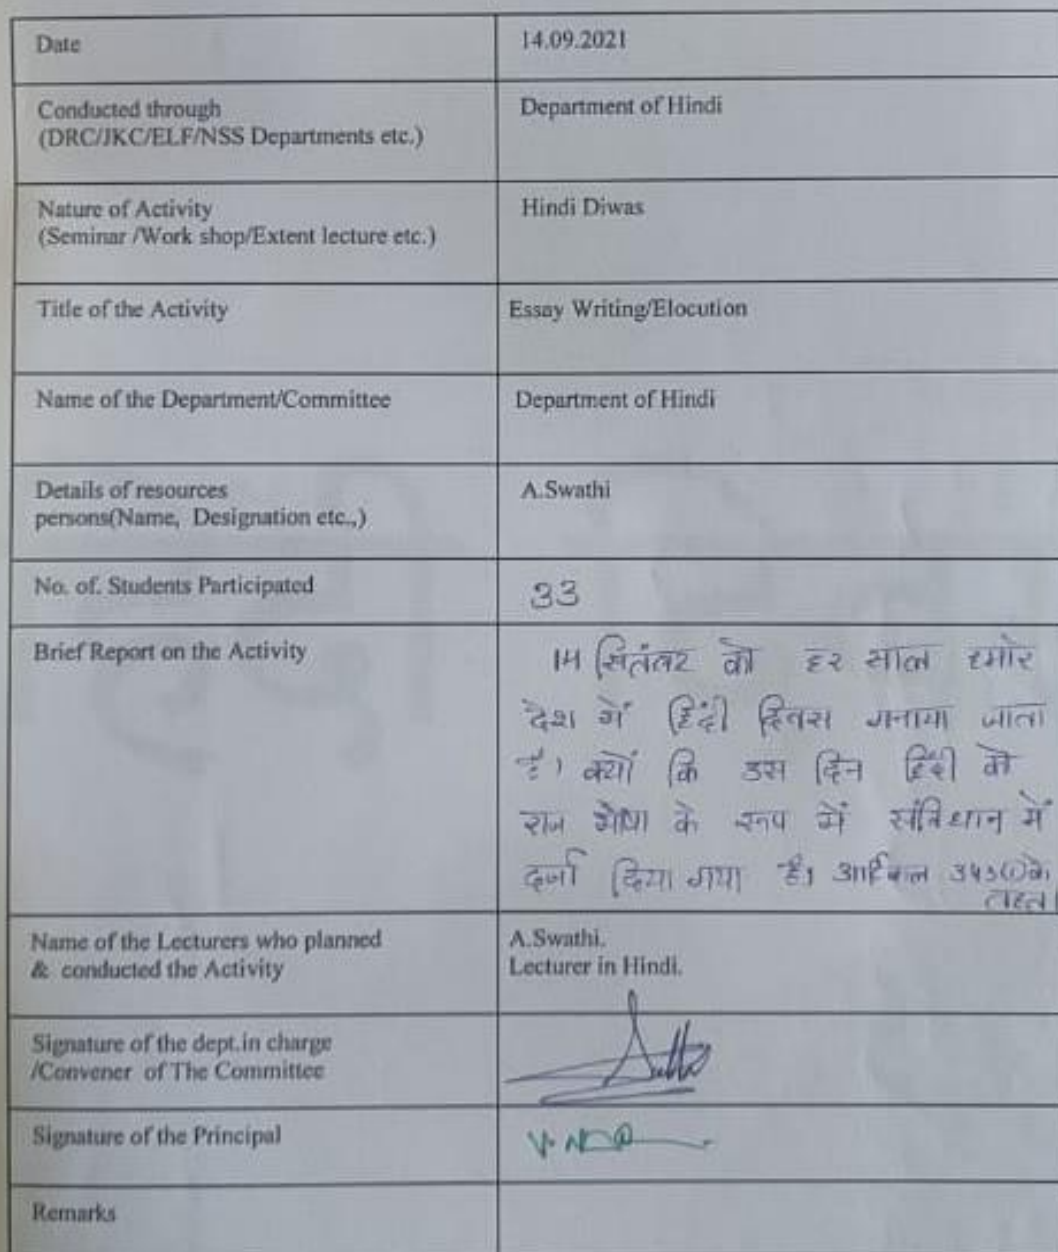 Date 14.09.2021
Conducted through Department of Hindi
(DRC/JKC/ELF/NSS Departments etc.)
Nature of Activity Hindi Diwas
(Seminar /Work shop/Extent lecture etc.)
Title of the Activity Essay Writing/Elocution
Name of the Department/Committee Department of Hindi
Details of resources A.Swathi
persons(Name, Designation etc.,)
No. of. Students Participated 33
Brief Report on the Activity 14 सितंबर को हर साल हमारे
देश में हिंदी दिवस मनाया जाता
है। क्यों कि उस दिन हिंदी को
राज भाषा के रूप में संविधान में
दर्जा दिया गया है। आर्टिकल 343(1)के
तहत।
Name of the Lecturers who planned A.Swathi.
& conducted the Activity Lecturer in Hindi.
Signature of the dept.in charge
/Convener of The Committee
Signature of the Principal
Remarks